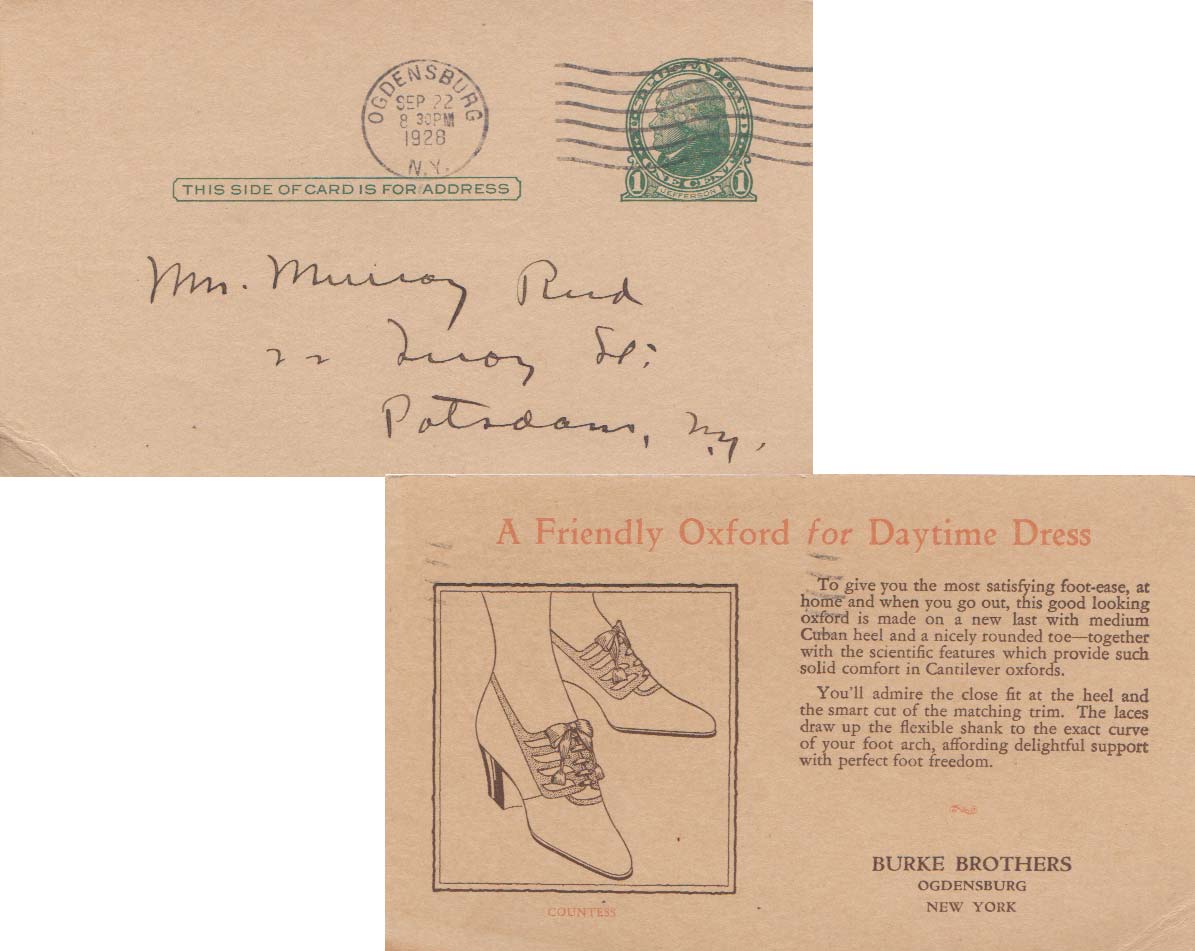 OGDENSBURG
SEP 22
8 30PM
1928
N.Y.
U.S. POSTAL CARD
ONE CENT
1 JEFFERSON 1
THIS SIDE OF CARD IS FOR ADDRESS
Mr. Murray
Potsdam, N.Y.
A Friendly Oxford for Daytime Dress
To give you the most satisfying foot-ease, at
home and when you go out, this good looking
oxford is made on a new last with medium
Cuban heel and a nicely rounded toe—together
with the scientific features which provide such
solid comfort in Cantilever oxfords.
You'll admire the close fit at the heel and
the smart cut of the matching trim. The laces
draw up the flexible shank to the exact curve
of your foot arch, affording delightful support
with perfect foot freedom.
BURKE BROTHERS
OGDENSBURG
NEW YORK
COUNTESS